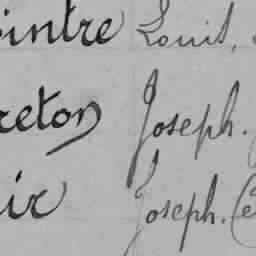 intre Louis,
reton Joseph.
ir Joseph. Ce